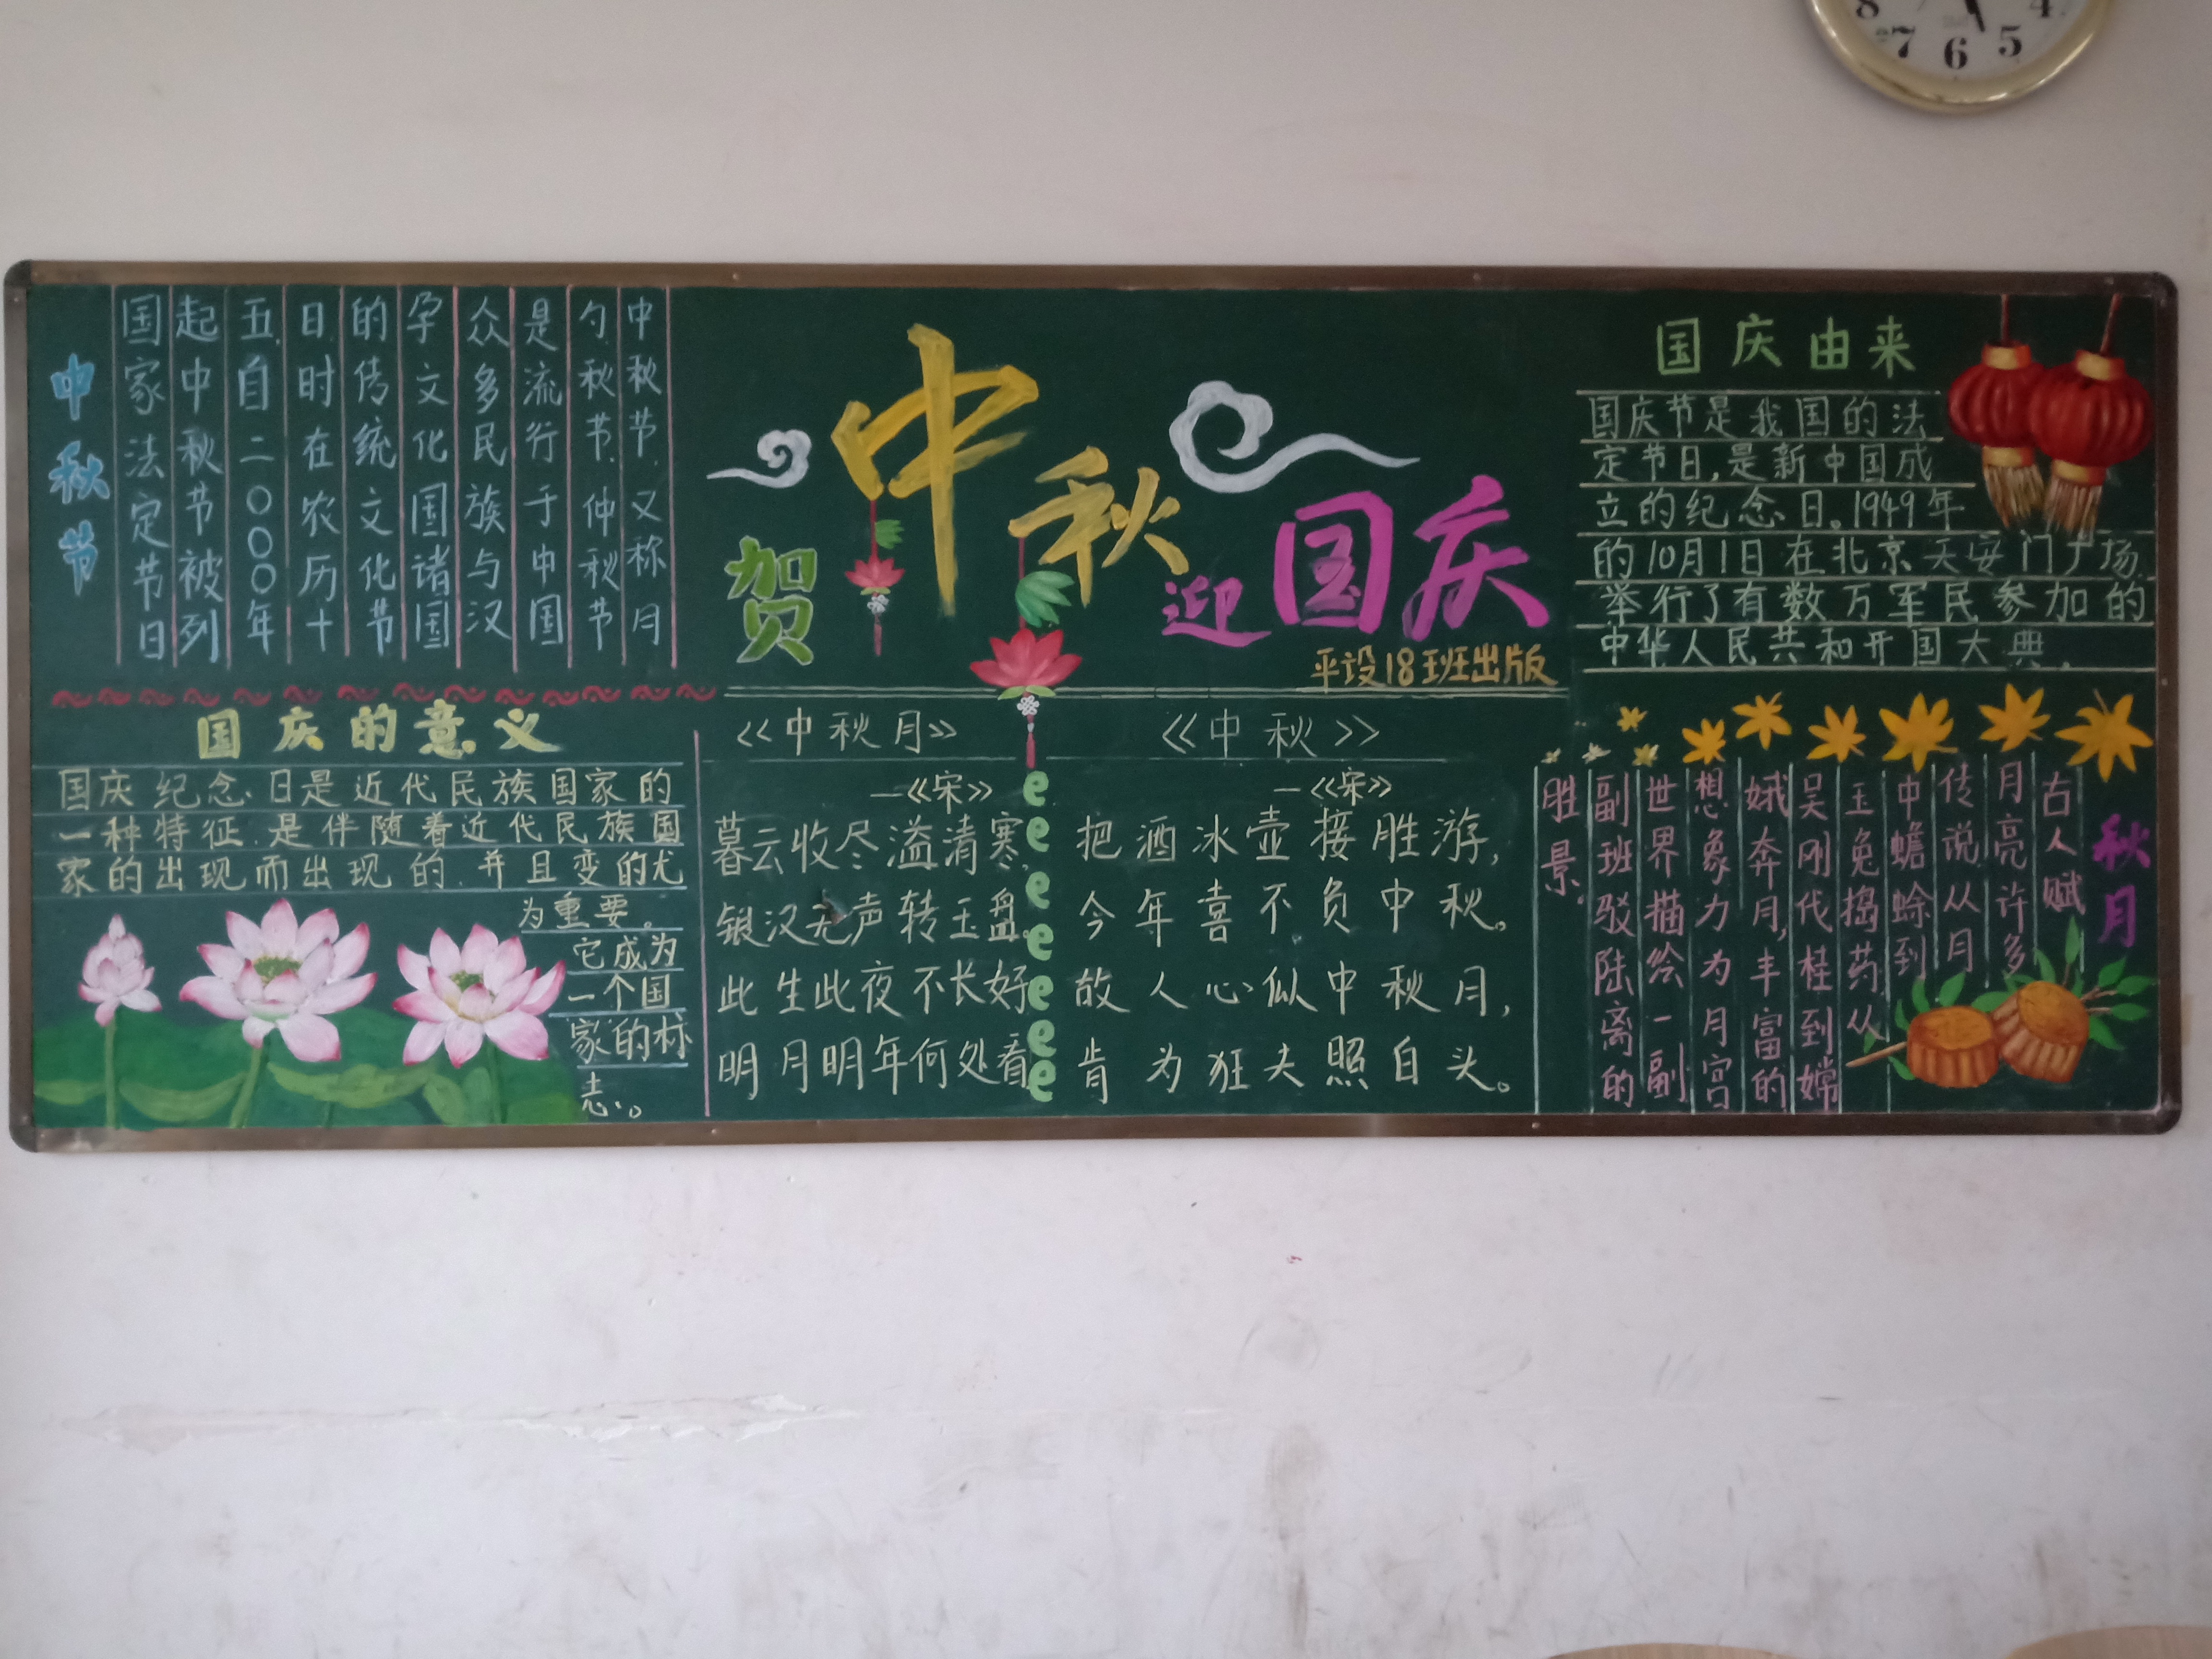 中秋节
中秋节,又称月
夕.秋节.仲秋节
是流行于中国
众多民族与汉
字文化国诸国
的传统文化节
日.时在农历十
五.自二〇〇〇年
起中秋节被列
国家法定节日
贺
中秋
迎
国庆
平设18班出版
国庆由来
国庆节是我国的法
定节日,是新中国成
立的纪念日。1949年
的10月1日在北京天安门广场
举行了有数万军民参加的
中华人民共和开国大典.
国庆的意义
国庆纪念日是近代民族国家的
一种特征.是伴随着近代民族国
家的出现而出现的.并且变的尤
为重要。
它成为
一个国
家的标
志。
《中秋月》
—《宋》
暮云收尽溢清寒,
银汉无声转玉盘。
此生此夜不长好
明月明年何处看
《中秋》
—《宋》
把酒冰壶接胜游,
今年喜不负中秋。
故人心似中秋月,
肯为狂夫照白头。
秋月
古人赋
月亮许多
传说从月
中蟾蜍到
玉兔捣药从
吴刚代桂到嫦
娥奔月,丰富的
想象力为月宫
世界描绘一副
副班驳陆离的
胜景.
8 7 6 5 4